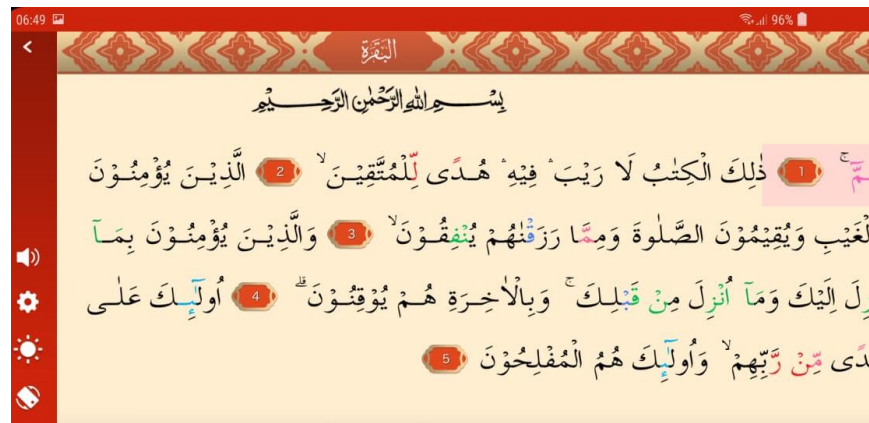 06:49
96%
البقرة
بِسْمِ اللهِ الرَّحْمٰنِ الرَّحِيْمِ
1 ذٰلِكَ الْكِتٰبُ لَا رَيْبَ ۛ فِيْهِ ۛ هُدًى لِّلْمُتَّقِيْنَ ۙ 2 الَّذِيْنَ يُؤْمِنُوْنَ
لْغَيْبِ وَيُقِيْمُوْنَ الصَّلٰوةَ وَمِمَّا رَزَقْنٰهُمْ يُنْفِقُوْنَ ۙ 3 وَالَّذِيْنَ يُؤْمِنُوْنَ بِمَآ
زِلَ اِلَيْكَ وَمَآ اُنْزِلَ مِنْ قَبْلِكَ ۚ وَبِالْاٰخِرَةِ هُمْ يُوْقِنُوْنَ ۗ 4 اُولٰۤىِٕكَ عَلٰى
دًى مِّنْ رَّبِّهِمْ ۙ وَاُولٰۤىِٕكَ هُمُ الْمُفْلِحُوْنَ 5